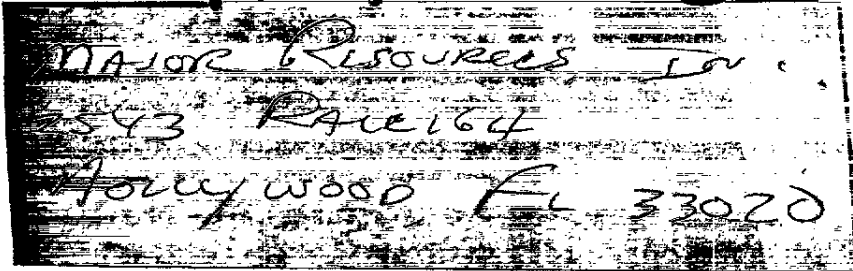 MAJOR RESOURCES Inc.
2543 RALEIGH
HOLLYWOOD FL 33020